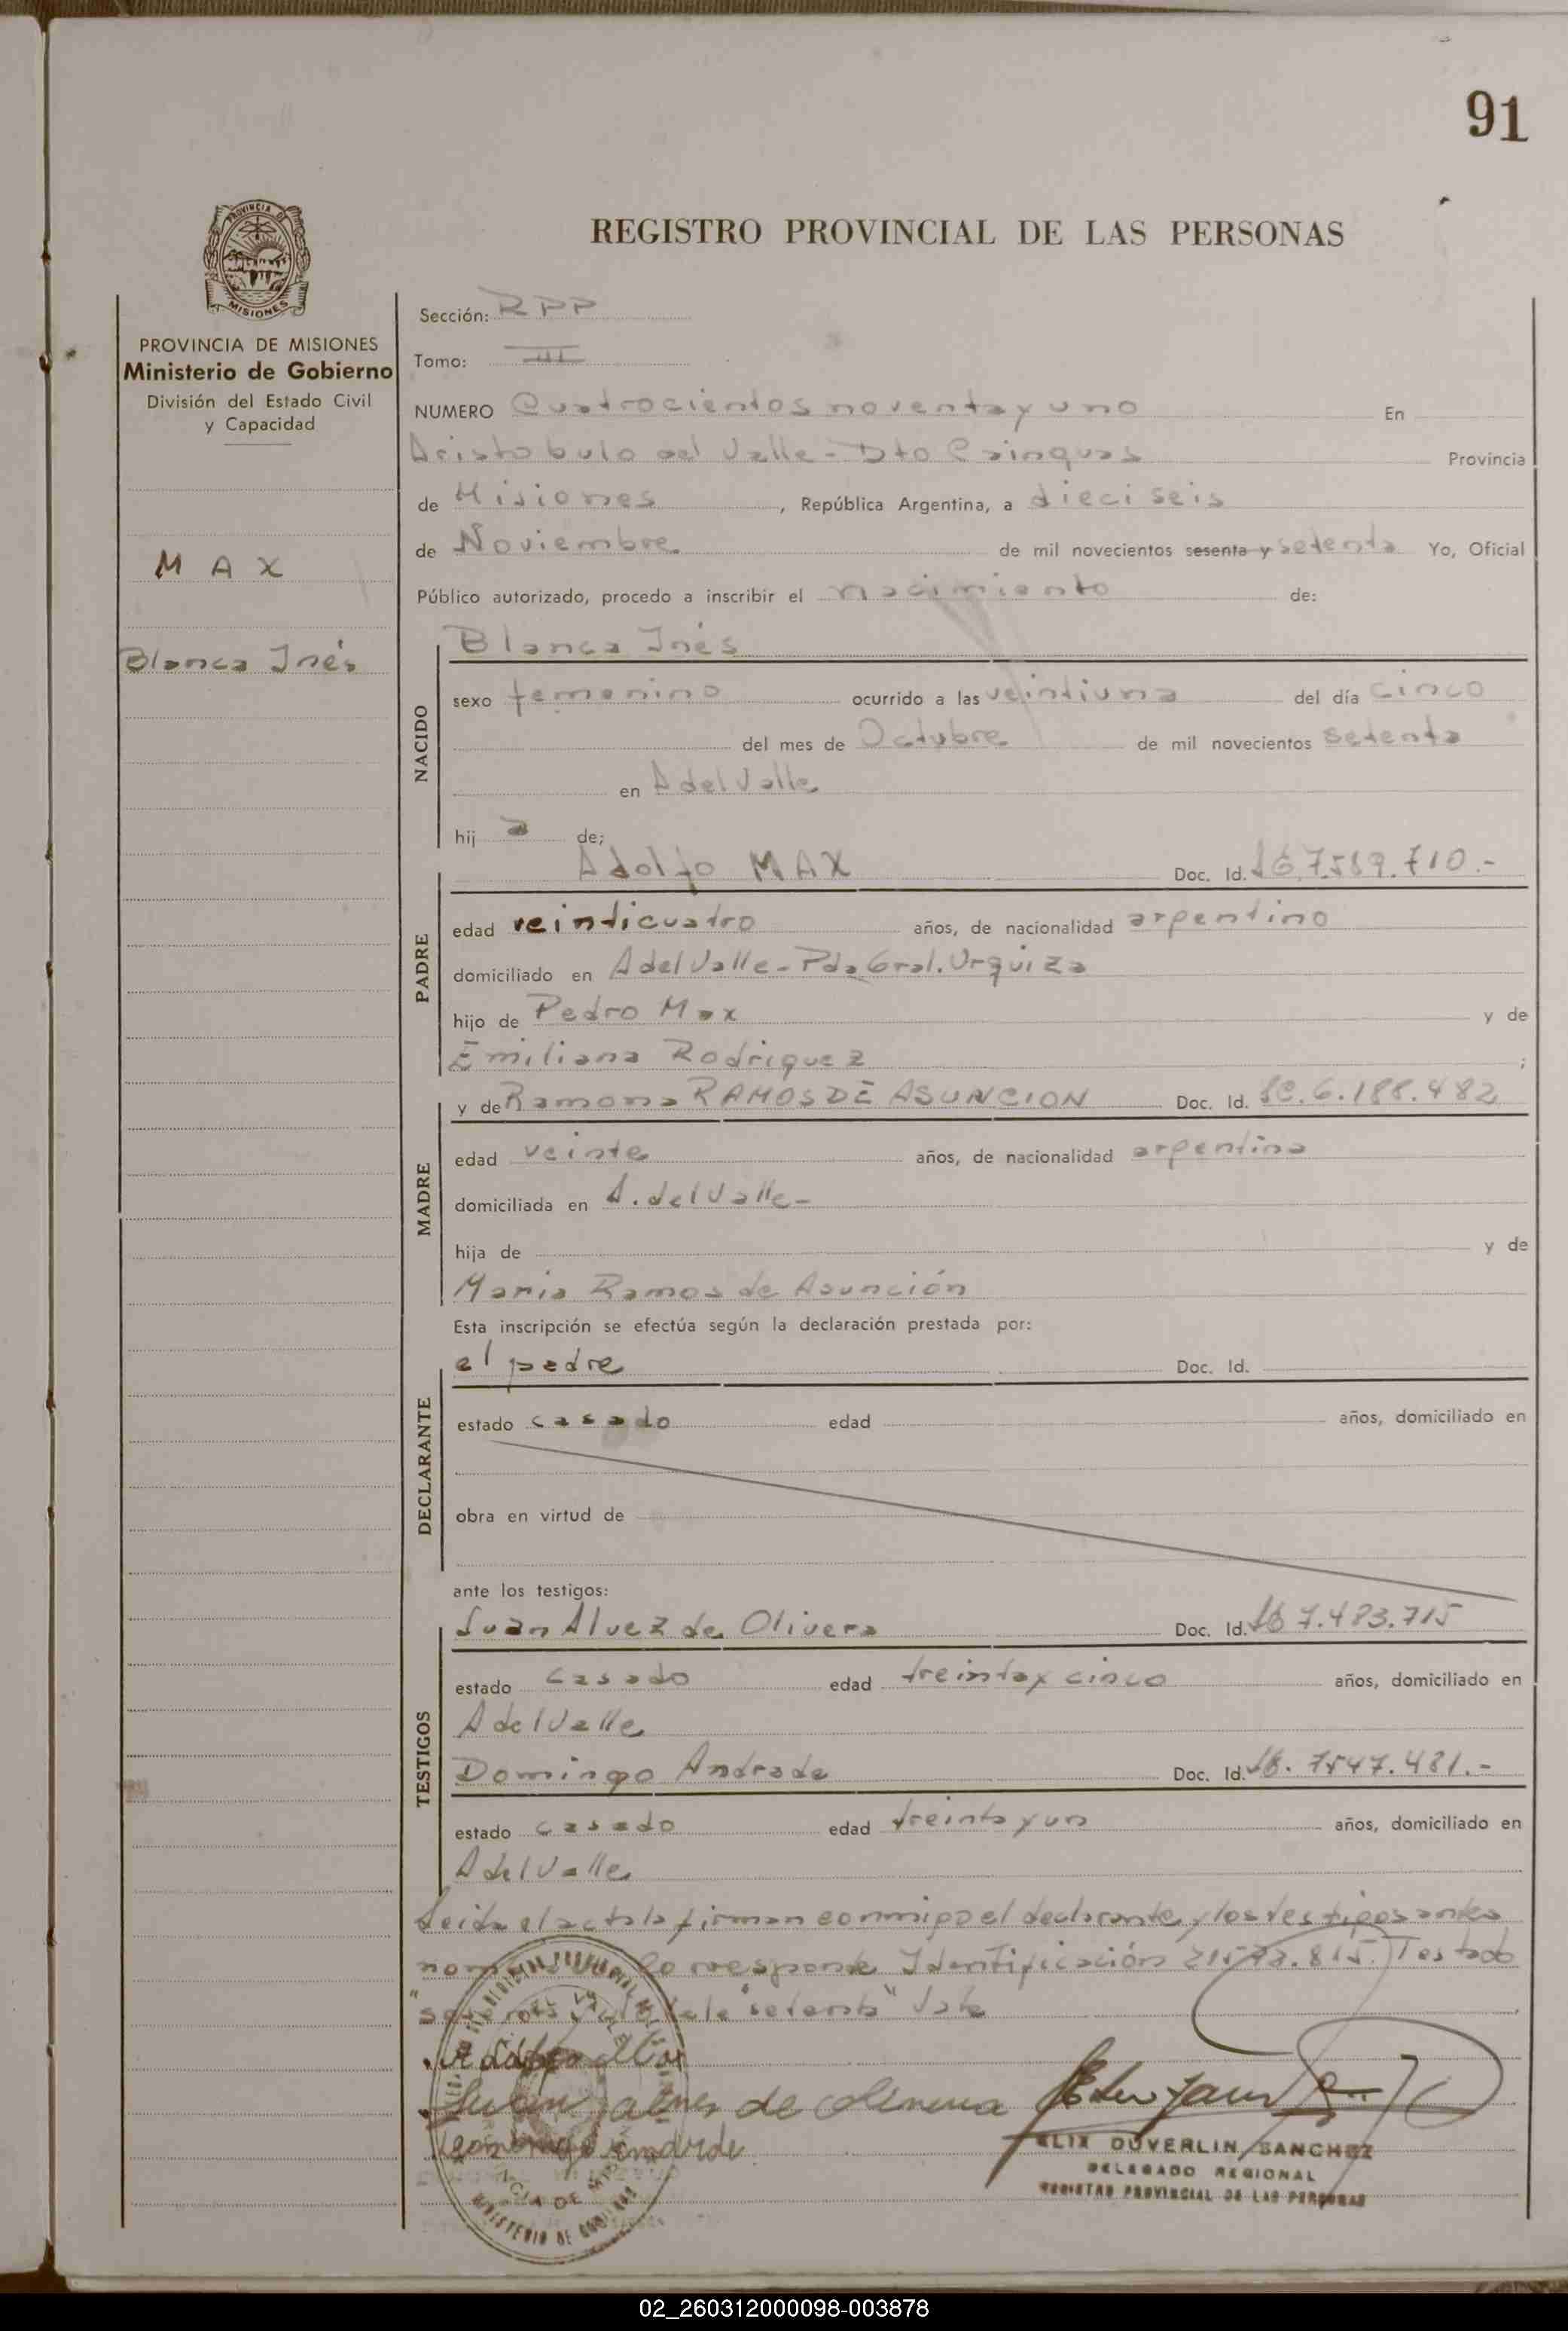 91
PROVINCIA DE
MISIONES
REGISTRO PROVINCIAL DE LAS PERSONAS
PROVINCIA DE MISIONES
Ministerio de Gobierno
División del Estado Civil
y Capacidad
MAX
Blanca Inés
Sección: RPP
Tomo: III
NUMERO Cuatrocientos noventa y uno En
Aristobulo del Valle - Dto Cainguas Provincia
de Misiones, República Argentina, a dieciseis
de Noviembre de mil novecientos sesenta y setenta Yo, Oficial
Público autorizado, procedo a inscribir el nacimiento de:
NACIDO
Blanca Inés
sexo femenino ocurrido a las veintiuna del día cinco
del mes de Octubre de mil novecientos setenta
en A del Valle
hij a de;
PADRE
Adolfo MAX Doc. Id. 7.569.710.-
edad veinticuatro años, de nacionalidad argentino
domiciliado en A del Valle - Pda Gral. Urquiza
hijo de Pedro Max y de
Emiliana Rodriguez ;
MADRE
y de Ramona RAMOS DE ASUNCION Doc. Id. LC. 6.188.482
edad veinte años, de nacionalidad argentina
domiciliada en A. del Valle -
hija de y de
Maria Ramos de Asunción
Esta inscripción se efectúa según la declaración prestada por:
DECLARANTE
el padre Doc. Id.
estado casado edad años, domiciliado en
obra en virtud de
ante los testigos:
TESTIGOS
Juan Alvez de Olivera Doc. Id. 7.483.715
estado casado edad treinta y cinco años, domiciliado en
A del Valle
Domingo Andrade Doc. Id. 7547.481.-
estado casado edad treinta y un años, domiciliado en
A del Valle
Leida el acta la firman conmigo el declarante y los testigos antes
Identificación Testado
"setenta" Vale
Juan de
DUVERLIN SANCHEZ
DELEGADO REGIONAL
REGISTRO PROVINCIAL DE LAS PERSONAS
MINISTERIO DE
02_260312000098-003878